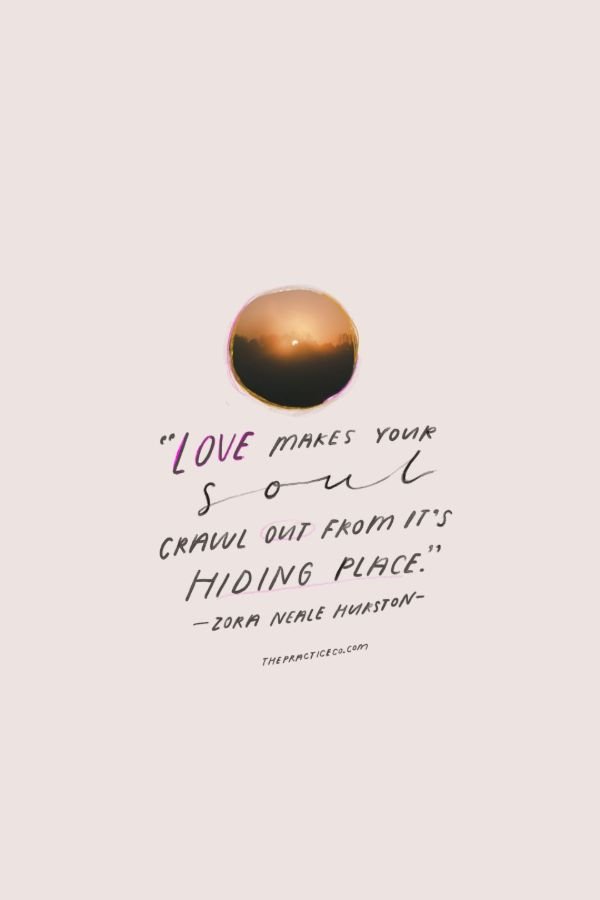 “LOVE MAKES YOUR
soul
CRAWL OUT FROM IT'S
HIDING PLACE.”
—ZORA NEALE HURSTON—
THEPRACTICECO.COM